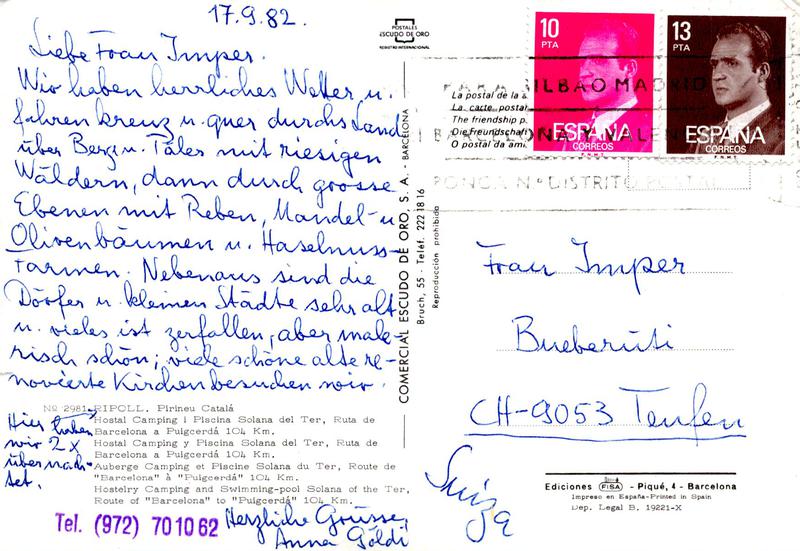 17.9.82.
Liebe Frau Imper.
Wir haben herrliches Wetter u.
fahren kreuz u. quer durchs Land
über Berg u. Täler mit riesigen
Wäldern, dann durch grosse
Ebenen mit Reben, Mandel- u
Olivenbäumen u. Haselnuss-
farmen. Nebenaus sind die
Dörfer u. kleinen Städte sehr alt
u. vieles ist zerfallen, aber male-
risch schön; viele schöne alte re-
novierte Kirchen besuchen wir.
Nº 2981-RIPOLL. Pirineu Catalá
Hostal Camping i Piscina Solana del Ter, Ruta de
Barcelona a Puigcerdá 104 Km.
Hostal Camping y Piscina Solana del Ter, Ruta de
Barcelona a Puigcerdá 104 Km.
Auberge Camping et Piscine Solana du Ter, Route de
"Barcelona" à "Puigcerdá" 104 Km.
Hostelry Camping and Swimming-pool Solana of the Ter,
Route of "Barcelona" to "Puigcerdá" 104 Km.
Hier haben
wir 2 x
übernach-
tet.
Tel. (972) 70 10 62
Herzliche Grüsse,
Anna Göldi
POSTALES
ESCUDO DE ORO
REGISTRO INTERNACIONAL
COMERCIAL ESCUDO DE ORO, S. A. - BARCELONA
Bruch, 55 - Teléf. 222 18 16
Reproducción prohibida
La postal de la a
La carte postal
The friendship p
Die Freundschaft
O postal da ami
10
PTA
ESPAÑA
CORREOS
F.N.M.T.
13
PTA
ESPAÑA
CORREOS
F.N.M.T.
PARA BILBAO MADRID
BARCELONA Y VALEN
PONGA Nº DISTRITO POSTAL
Frau Imper
Bueberüti
CH-9053 Teufen
Suiza
Ediciones FISA - Piqué, 4 - Barcelona
Impreso en España-Printed in Spain
Dep. Legal B. 19221-X